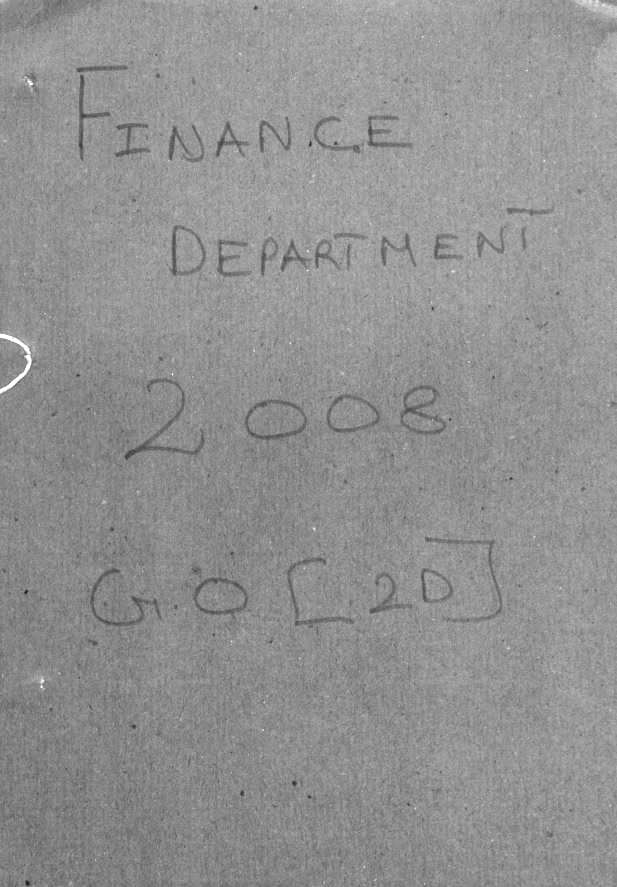 FINANCE
DEPARTMENT
2008
G.O [2D]